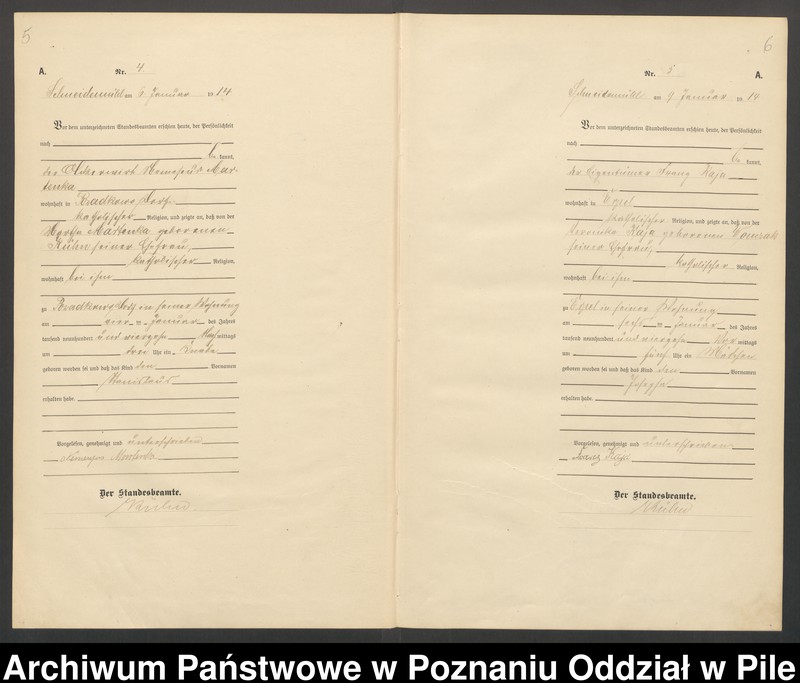 5
A. Nr. 4.
Schneidemühl am 8 Januar 1914
Vor dem unterzeichneten Standesbeamten erschien heute, der Persönlichkeit
nach
be kannt,
der
wohnhaft in
katholischer Religion, und zeigte an, daß von der
Martha Martenka geborenen
Kühn seiner Ehefrau,
katholischer Religion,
wohnhaft bei ihm
zu in seiner Wohnung
am vier ten Januar des Jahres
tausend neunhundert und vierzehn Nach mittags
um drei Uhr ein Knabe
geboren worden sei und daß das Kind den Vornamen
Stanislaus
erhalten habe
Vorgelesen, genehmigt und unterschrieben
Der Standesbeamte.
6
Nr. 5 A.
Schneidemühl am 9 Januar 1914
Vor dem unterzeichneten Standesbeamten erschien heute, der Persönlichkeit
nach
be kannt,
der Eigentümer Franz Kaja
wohnhaft in Usch
katholischer Religion, und zeigte an, daß von der
Veronika Kaja geborenen
seiner Ehefrau,
katholischer Religion,
wohnhaft bei ihm
zu in seiner Wohnung
am sechs ten Januar des Jahres
tausend neunhundert und vierzehn Vor mittags
um fünf Uhr ein Mädchen
geboren worden sei und daß das Kind den Vornamen
Josepha
erhalten habe.
Vorgelesen, genehmigt und unterschrieben
Der Standesbeamte.
Archiwum Państwowe w Poznaniu Oddział w Pile